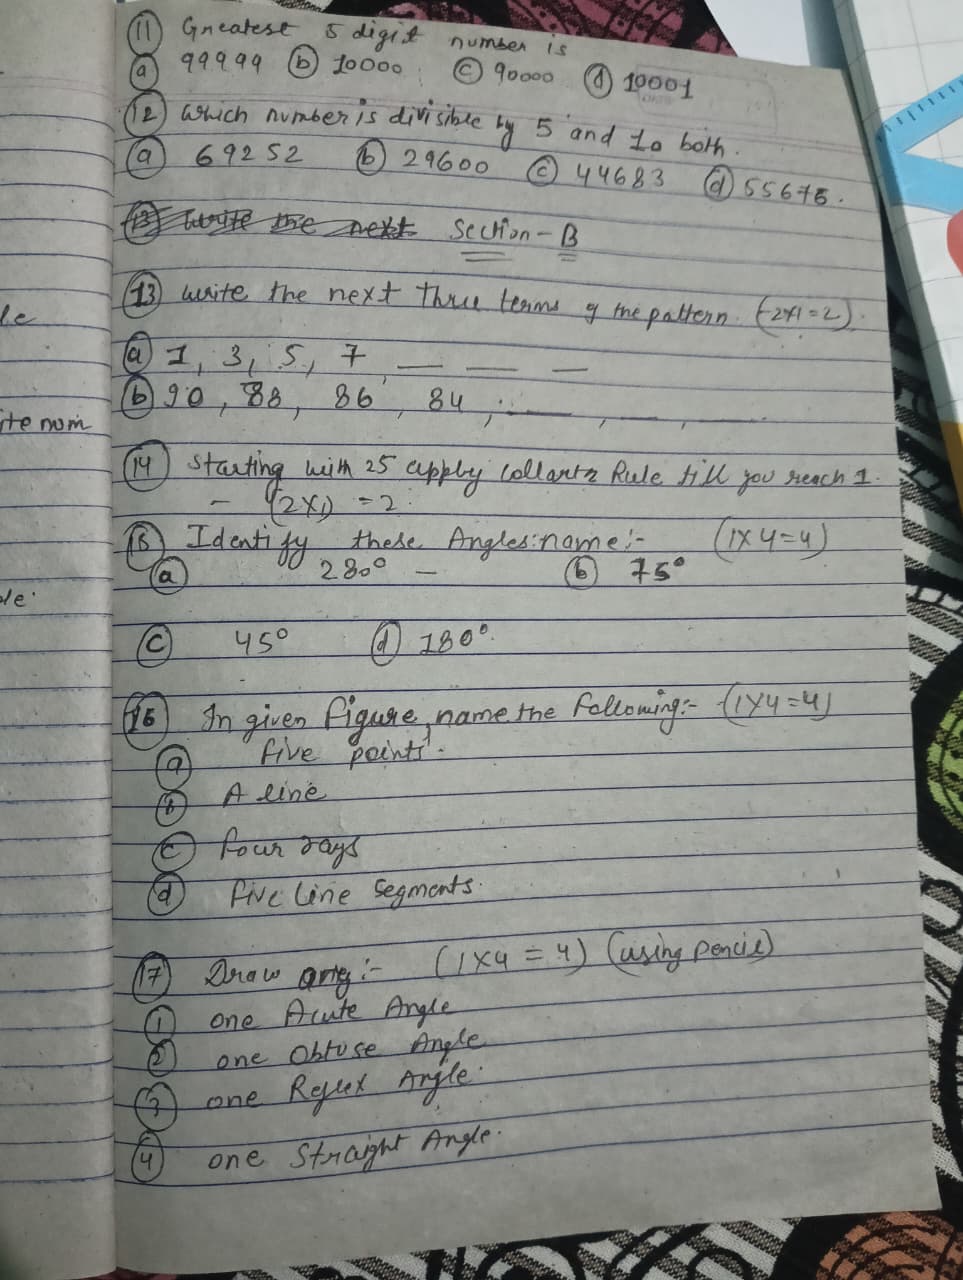 (11) Greatest 5 digit number is
(a) 99999 (b) 10000 (c) 90000 (d) 10001
(12) which number is divisible by 5 and 10 both.
(a) 69252 (b) 29600 (c) 44683 (d) 55675.
(13) write the next Section-B
(13) write the next three terms of the pattern. (2x1=2)
(a) 1, 3, 5, 7, __ __ __
(b) 90, 88, 86, 84, __, __, __
le
ite nom
(14) Starting with 25 apply collartz Rule till you reach 1.
- (2x1) = 2.
(15) Identify these Angles: name:- (1x4=4)
(a) 280° - (b) 75°
le.
(c) 45° (d) 180°.
(16) In given figure, name the following:- (1x4=4)
(a) five points.
(b) A line
(c) four rays
(d) five line segments.
(17) Draw any:- (1x4=4) (using pencil)
(1) one Acute Angle
(2) one obtuse Angle
(3) one Reflex Angle.
(4) one straight Angle.